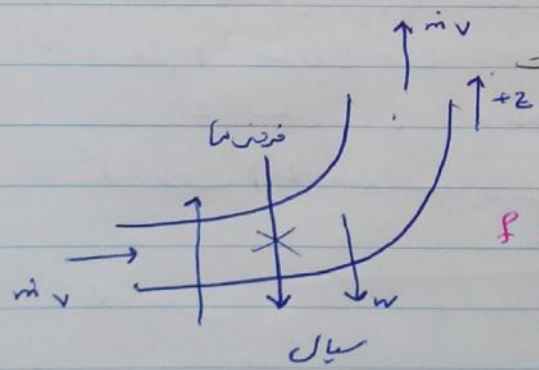 ṁ v
+z
فرض ما
f
ṁ v
w
سیال